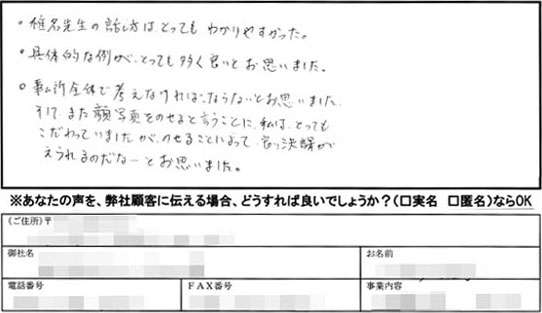 ・椎名先生の話し方は、とってもわかりやすかった。
・具体的な例が、とっても多く良いとお思いました。
・事ム所全体で考えなければならないとお思いました。
そして、また顔写真をのせると言うことに、私は、とっても
こだわっていましたが、のせることによって、良い決講が
えられるのだな…とお思いました。
※あなたの声を、弊社顧客に伝える場合、どうすれば良いでしょうか?(口実名 口匿名)ならOK
(ご住所)〒
御社名 お名前
電話番号 FAX番号 事業内容